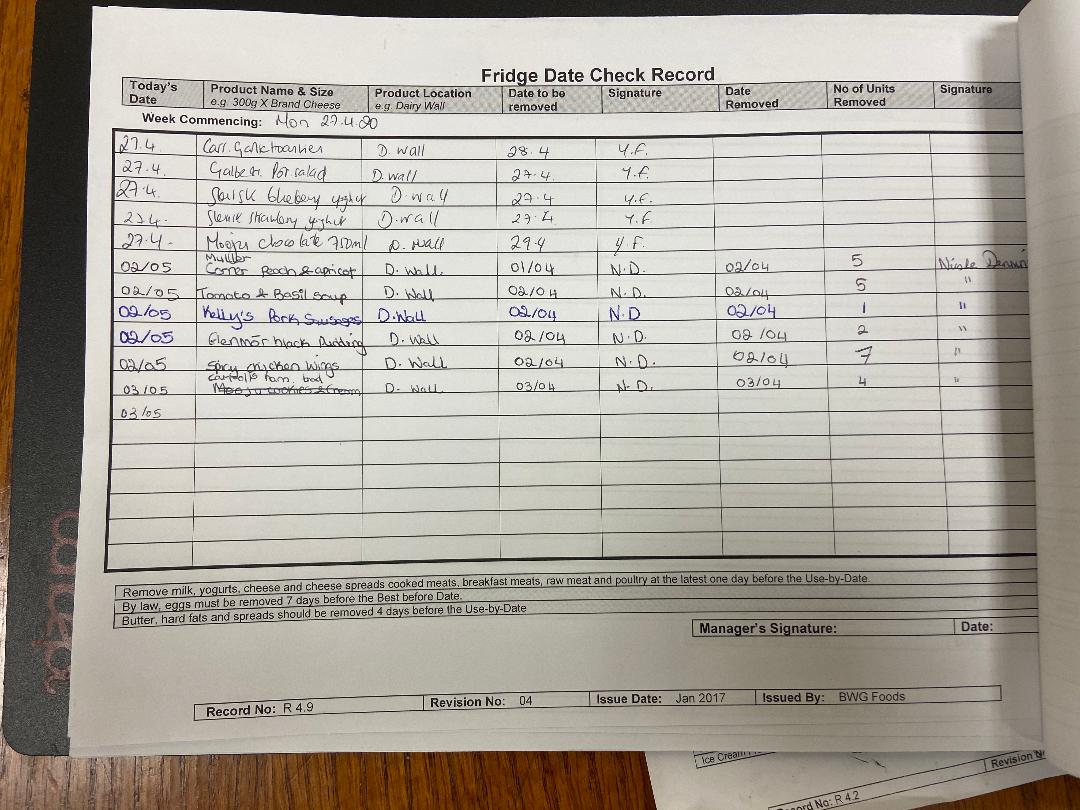 Fridge Date Check Record
Today's Date Product Name & Size e.g. 300g X Brand Cheese Product Location e.g. Dairy Wall Date to be removed Signature Date Removed No of Units Removed Signature
Week Commencing: Mon 27.4.20
27.4. Carr. D. wall 28.4 Y.F.
27.4. Pot. salad D. wall 27.4. Y.F.
27.4. D. wall 27.4 Y.F.
27.4. D. wall 27.4 Y.F.
27.4. Mooju chocolate 750ml D. wall 29.4 Y.F.
02/05 Muller Corner Peach & apricot D. Wall 01/04 N.D. 02/04 5 Nicole
02/05 Tomato & Basil soup D. Wall 02/04 N.D. 02/04 5 "
02/05 Kelly's Pork Sausages D.Wall 02/04 N.D 02/04 1 "
02/05 Glenmor black Pudding D. Wall 02/04 N.D. 02/04 2 "
02/05 chicken wings D. Wall 02/04 N.D. 02/04 7 "
03/05 ham D. Wall 03/04 N.D. 03/04 4 "
03/05
Remove milk, yogurts, cheese and cheese spreads cooked meats, breakfast meats, raw meat and poultry at the latest one day before the Use-by-Date.
By law, eggs must be removed 7 days before the Best before Date.
Butter, hard fats and spreads should be removed 4 days before the Use-by-Date
Manager's Signature: Date:
Record No: R 4.9 Revision No: 04 Issue Date: Jan 2017 Issued By: BWG Foods
Ice Cream
Revision
ord No: R 4.2